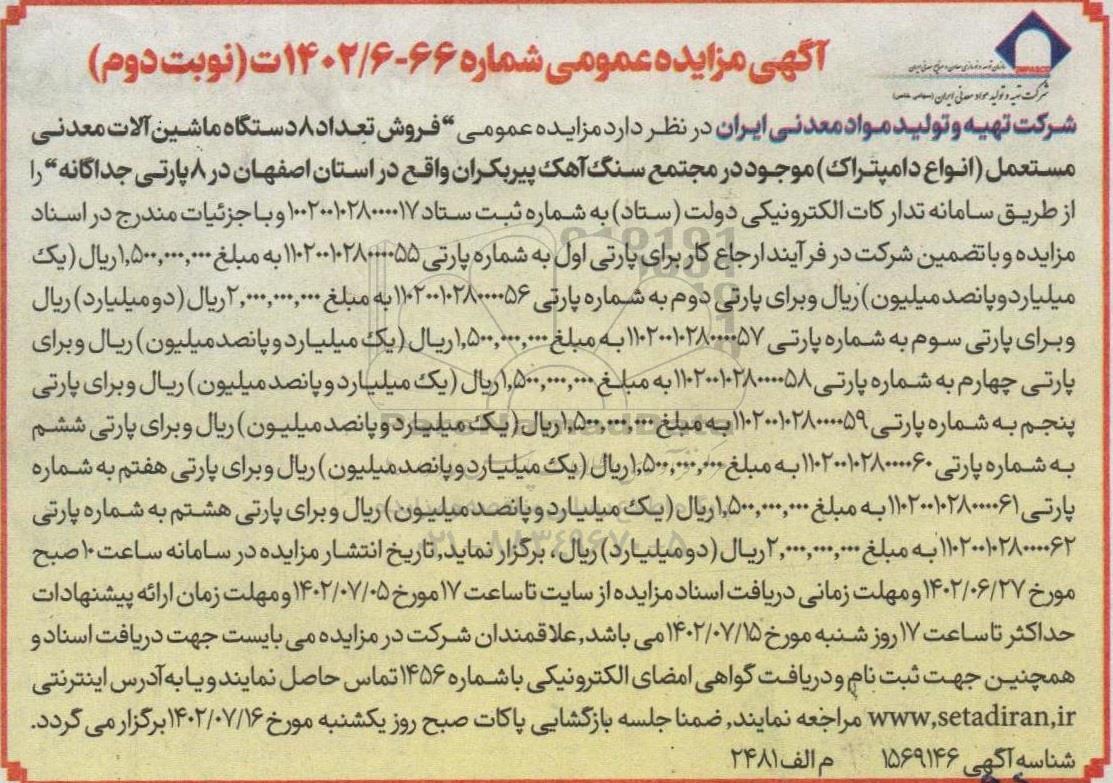 آگهی مزایده عمومی شماره ۶۶-۱۴۰۲/۶ت (نوبت دوم)
IMPASCO
شرکت تهیه و تولید مواد معدنی ایران
شرکت تهیه و تولید مواد معدنی ایران در نظر دارد مزایده عمومی "فروش تعداد ۸ دستگاه ماشین آلات معدنی
مستعمل (انواع دامپتراک) موجود در مجتمع سنگ آهک پیربکران واقع در استان اصفهان در ۸ پارتی جداگانه" را
از طریق سامانه تدارکات الکترونیکی دولت (ستاد) به شماره ثبت ستاد ۱۰۰۲۰۰۱۰۲۸۰۰۰۰۱۷ و با جزئیات مندرج در اسناد
مزایده و با تضمین شرکت در فرآیند ارجاع کار برای پارتی اول به شماره پارتی ۱۱۰۲۰۰۱۰۲۸۰۰۰۰۵۵ به مبلغ ۱,۵۰۰,۰۰۰,۰۰۰ ریال (یک
میلیارد و پانصد میلیون) ریال و برای پارتی دوم به شماره پارتی ۱۱۰۲۰۰۱۰۲۸۰۰۰۰۵۶ به مبلغ ۲,۰۰۰,۰۰۰,۰۰۰ ریال (دو میلیارد) ریال
و برای پارتی سوم به شماره پارتی ۱۱۰۲۰۰۱۰۲۸۰۰۰۰۵۷ به مبلغ ۱,۵۰۰,۰۰۰,۰۰۰ ریال (یک میلیارد و پانصد میلیون) ریال و برای
پارتی چهارم به شماره پارتی ۱۱۰۲۰۰۱۰۲۸۰۰۰۰۵۸ به مبلغ ۱,۵۰۰,۰۰۰,۰۰۰ ریال (یک میلیارد و پانصد میلیون) ریال و برای پارتی
پنجم به شماره پارتی ۱۱۰۲۰۰۱۰۲۸۰۰۰۰۵۹ به مبلغ ۱,۵۰۰,۰۰۰,۰۰۰ ریال (یک میلیارد و پانصد میلیون) ریال و برای پارتی ششم
به شماره پارتی ۱۱۰۲۰۰۱۰۲۸۰۰۰۰۶۰ به مبلغ ۱,۵۰۰,۰۰۰,۰۰۰ ریال (یک میلیارد و پانصد میلیون) ریال و برای پارتی هفتم به شماره
پارتی ۱۱۰۲۰۰۱۰۲۸۰۰۰۰۶۱ به مبلغ ۱,۵۰۰,۰۰۰,۰۰۰ ریال (یک میلیارد و پانصد میلیون) ریال و برای پارتی هشتم به شماره پارتی
۱۱۰۲۰۰۱۰۲۸۰۰۰۰۶۲ به مبلغ ۲,۰۰۰,۰۰۰,۰۰۰ ریال (دو میلیارد) ریال، برگزار نماید, تاریخ انتشار مزایده در سامانه ساعت ۱۰ صبح
مورخ ۱۴۰۲/۰۶/۲۷ و مهلت زمانی دریافت اسناد مزایده از سایت تا ساعت ۱۷ مورخ ۱۴۰۲/۰۷/۰۵ و مهلت زمان ارائه پیشنهادات
حداکثر تا ساعت ۱۷ روز شنبه مورخ ۱۴۰۲/۰۷/۱۵ می باشد, علاقمندان شرکت در مزایده می بایست جهت دریافت اسناد و
همچنین جهت ثبت نام و دریافت گواهی امضای الکترونیکی با شماره ۱۴۵۶ تماس حاصل نمایند و یا به آدرس اینترنتی
www,setadiran,ir مراجعه نمایند, ضمنا جلسه بازگشایی پاکات صبح روز یکشنبه مورخ ۱۴۰۲/۰۷/۱۶ برگزار می گردد.
شناسه آگهی ۱۵۶۹۱۴۶ م الف ۲۴۸۱